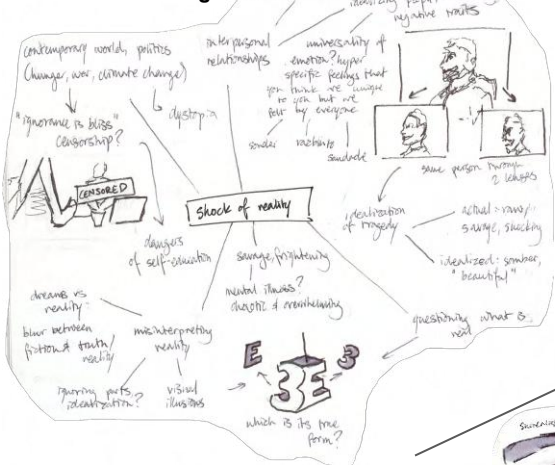 negative traits
contemporary world, politics
(hunger, war, climate change)
"ignorance is bliss"
censorship?
dystopia
CENSORED
interpersonal
relationships
universality of
emotion? hyper
specific feelings that
you think are unique
to you but are
felt by everyone
sonder
saudade
same person through
2 lenses
shock of reality
idealization
of tragedy
actual: raw/
savage, shocking
idealized: somber,
"beautiful"
dangers
of self-education
savage, frightening
mental illness?
chaotic & overwhelming
questioning what is
real
dreams vs
reality
blur between
fiction & truth/
reality
misinterpreting
reality
ignoring parts,
idealization?
visual
illusions
E
3E
3
which is its true
form?